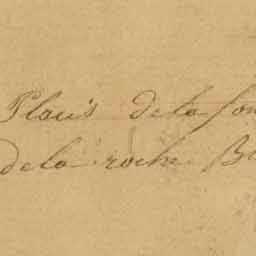 Plans de la fon
de la roche B